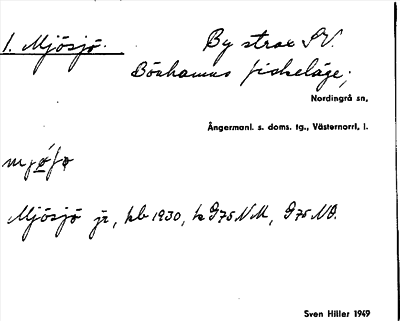 1. Mjösjö. By strax S.V.
Bönhamns fiskeläge;
Nordingrå sn,
Ångermanl. s. doms. tg., Västernorrl. l.
Mjösjö jr, kb 1930, k G75 NV, G75 NO.
Sven Hiller 1949